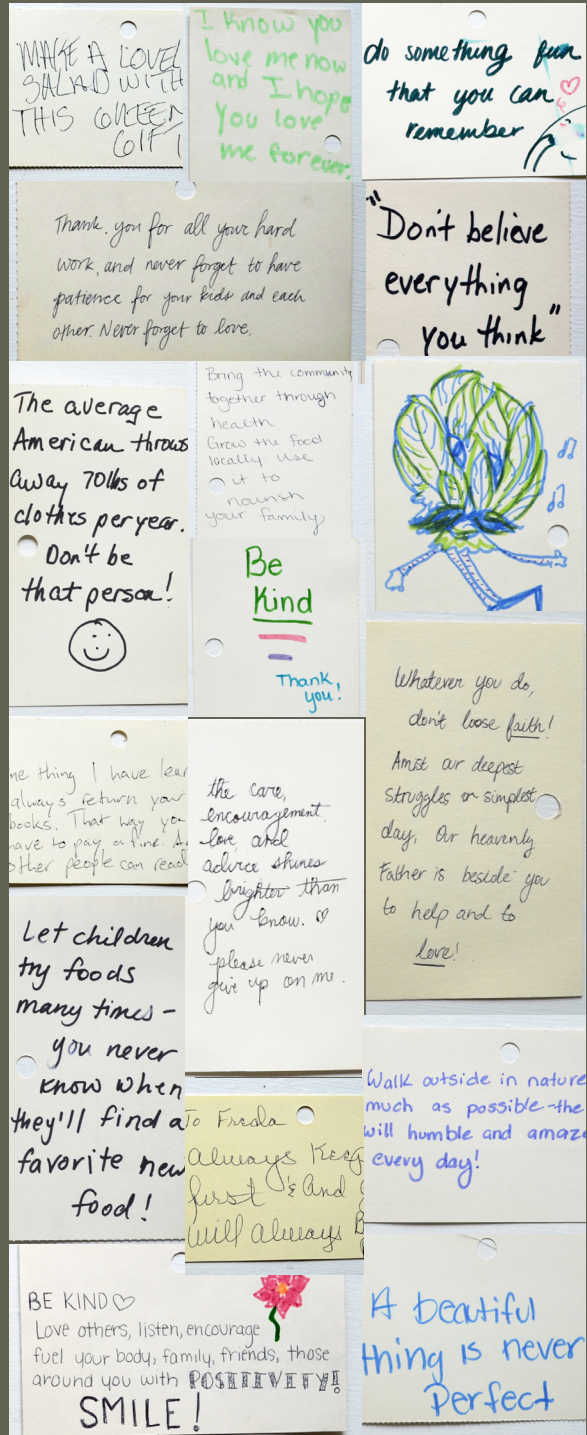 MAKE A LOVEL
SALAD WITH
THIS GREEN
GIFT
I know you
love me now
and I hope
you love
me forever.
do something fun
that you can
remember
Thank you for all your hard
work, and never forget to have
patience for your kids and each
other. Never forget to love.
"Don't believe
everything
you think"
The average
American throws
away 70lbs of
clothes per year.
Don't be
that person!
Bring the community
together through
health
Grow the food
locally. Use
it to
nourish
your family
Be
Kind
Thank
you!
Whatever you do,
don't loose faith!
Amist our deepest
struggles or simplest
day, Our heavenly
Father is beside you
to help and to
love!
ne thing I have lear
always return your
books. That way yo
have to pay a fine. A
other people can read
the care,
encouragement,
love, and
advice shines
brighter than
you know. ♡
please never
give up on me.
Let children
try foods
many times -
you never
know when
they'll find a
favorite new
food!
Walk outside in nature
much as possible - the
will humble and amaz
every day!
To Freda
always Keep
first & And
will always B
BE KIND ♡
Love others, listen, encourage
fuel your body, family, friends, those
around you with POSITIVITY!
SMILE!
A beautiful
thing is never
Perfect